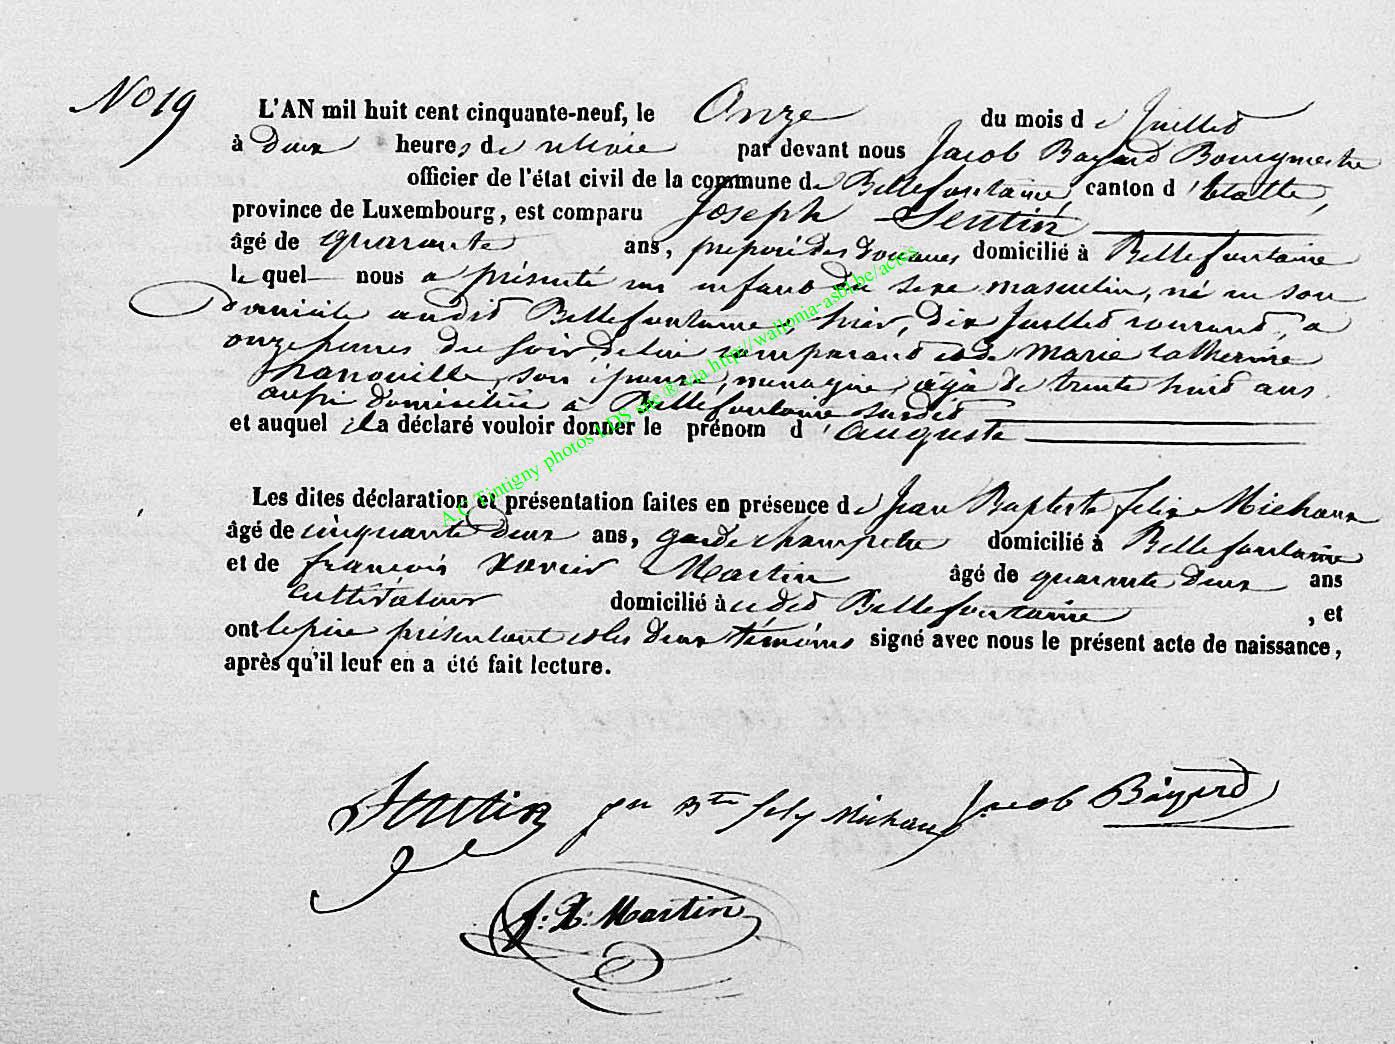 No 19
L'AN mil huit cent cinquante-neuf, le Onze du mois de Juillet
à deux heures de relevée par devant nous Jacob Bayard Bourgmestre
officier de l'état civil de la commune de Bellefontaine, canton d'Etalle,
province de Luxembourg, est comparu Joseph Sentin
âgé de quarante ans, préposé des douanes domicilié à Bellefontaine
lequel nous a présenté un enfant du sexe masculin, né en son
domicile audit Bellefontaine, hier, dix Juillet courant, à
onze heures du soir, de lui comparant et de Marie Catherine
hanouille, son épouse, ménagère, âgée de trente huit ans
aussi domiciliée à Bellefontaine susdit
et auquel il a déclaré vouloir donner le prénom d'auguste
Les dites déclaration et présentation faites en présence de Jean Baptiste felix Michaux
âgé de cinquante deux ans, garde champetre domicilié à Bellefontaine
et de françois Xavier Martin âgé de quarante deux ans
cultivateur domicilié à udit Bellefontaine, et
ont le père présentant et les deux témoins signé avec nous le présent acte de naissance,
après qu'il leur en a été fait lecture.
A.C Tintigny photos LDS site ® via http://wallonia-asbl.be/actes
Sentin Jn Bte fely Michaux Jacob Bayard
f: X: Martin